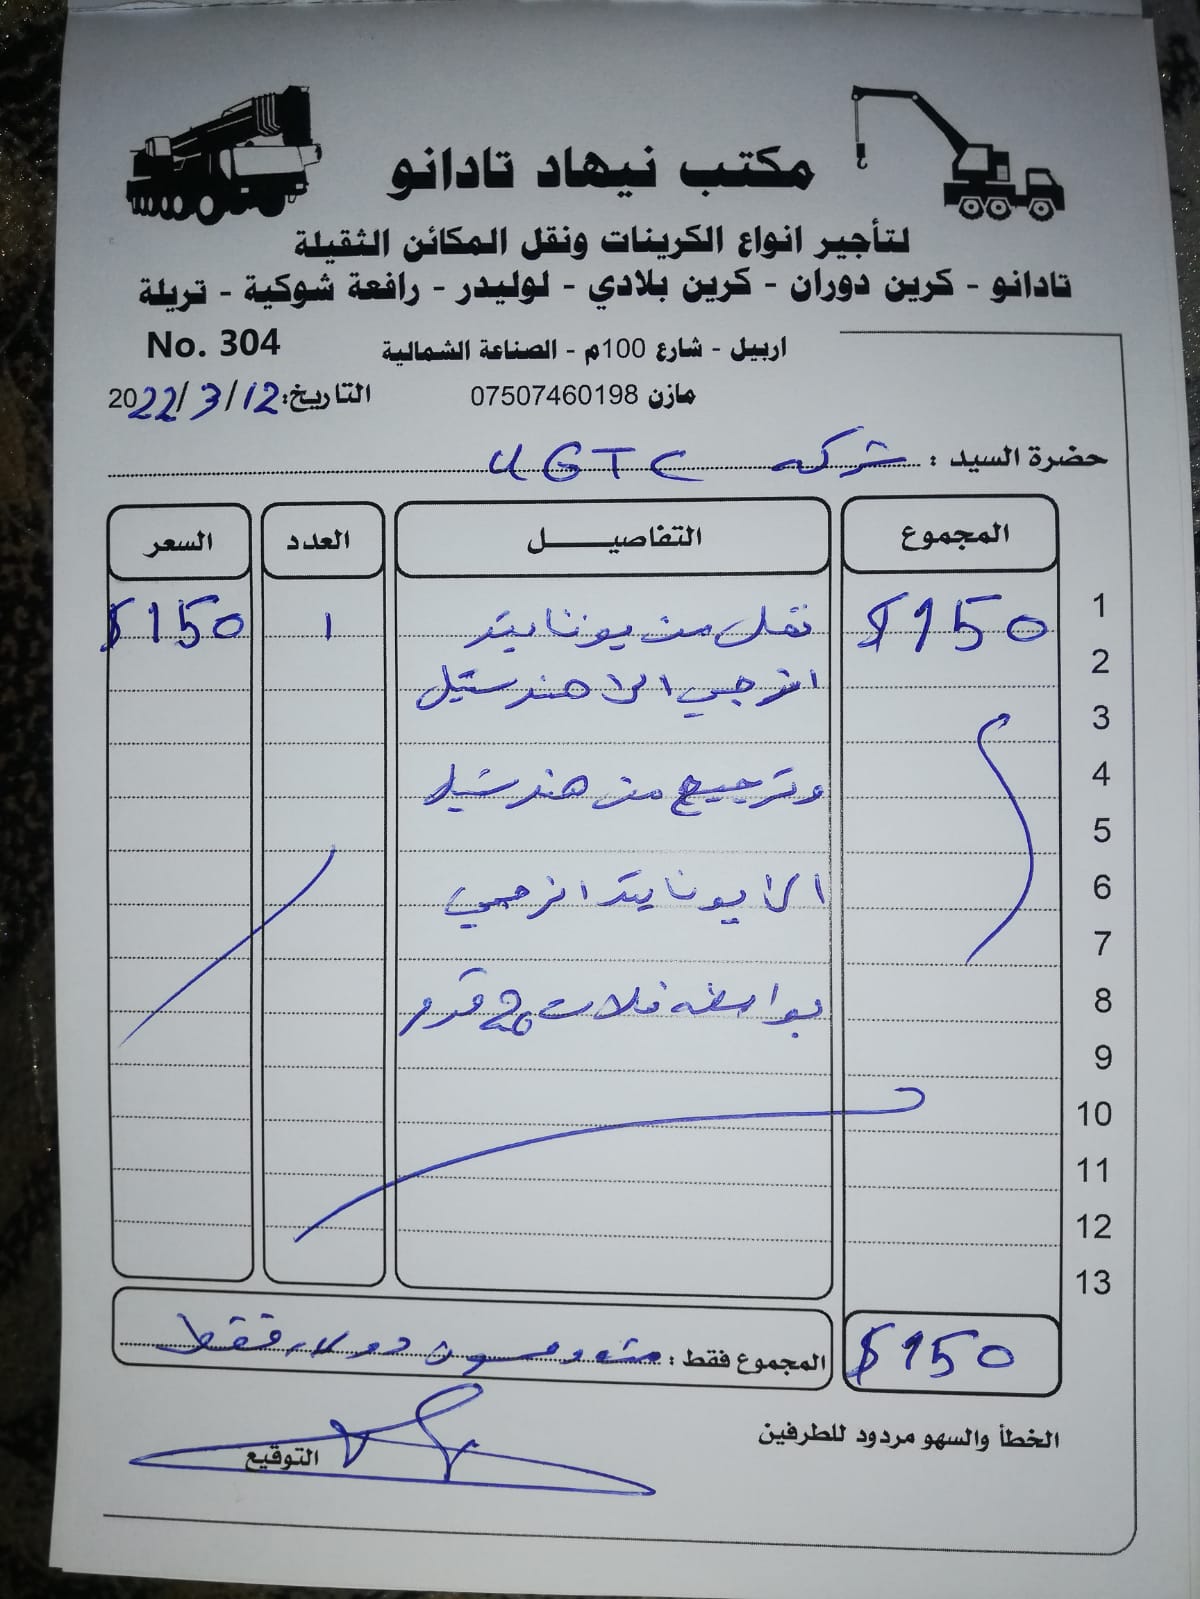 مكتب نيهاد تادانو
لتأجير انواع الكرينات ونقل المكائن الثقيلة
تادانو - كرين دوران - كرين بلادي - لوليدر - رافعة شوكية - تريلة
اربيل - شارع 100م - الصناعة الشمالية
No. 304
مازن 07507460198
التاريخ: 2022/3/12
حضرة السيد : شركه UGTC
المجموع التفاصيل العدد السعر
1 $150 نقل من يونايتد 1 $150
2 انرجي الا هندرستيل
3
4 وترجيع من هندرستيل
5
6 الا يونايتد انرجي
7
8 بواسطه فلات 20 قدم
9
10
11
12
13
$150 المجموع فقط : مئه وخمسون دولار فقط
الخطأ والسهو مردود للطرفين
التوقيع